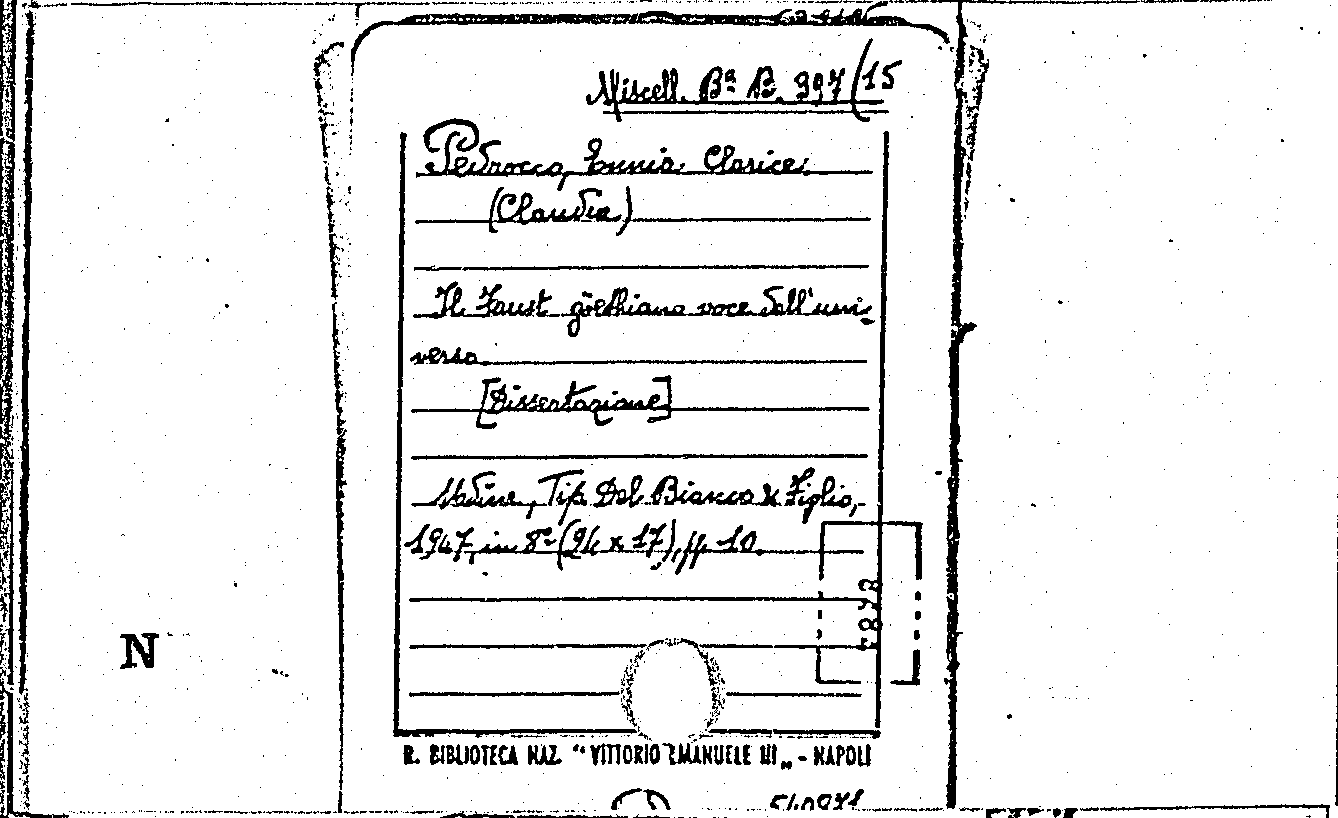 Miscell. Bª B. 397/15
Pedrocco, Ennia Clarice
(Claudia)
Il Faust göethiano voce dell'uni-
verso
[Dissertazione]
Udine, Tip. Del Bianco & Figlio,
1947, in 8º (24 x 17), pp. 10.
N
R. BIBLIOTECA NAZ. “VITTORIO EMANUELE III„ - NAPOLI